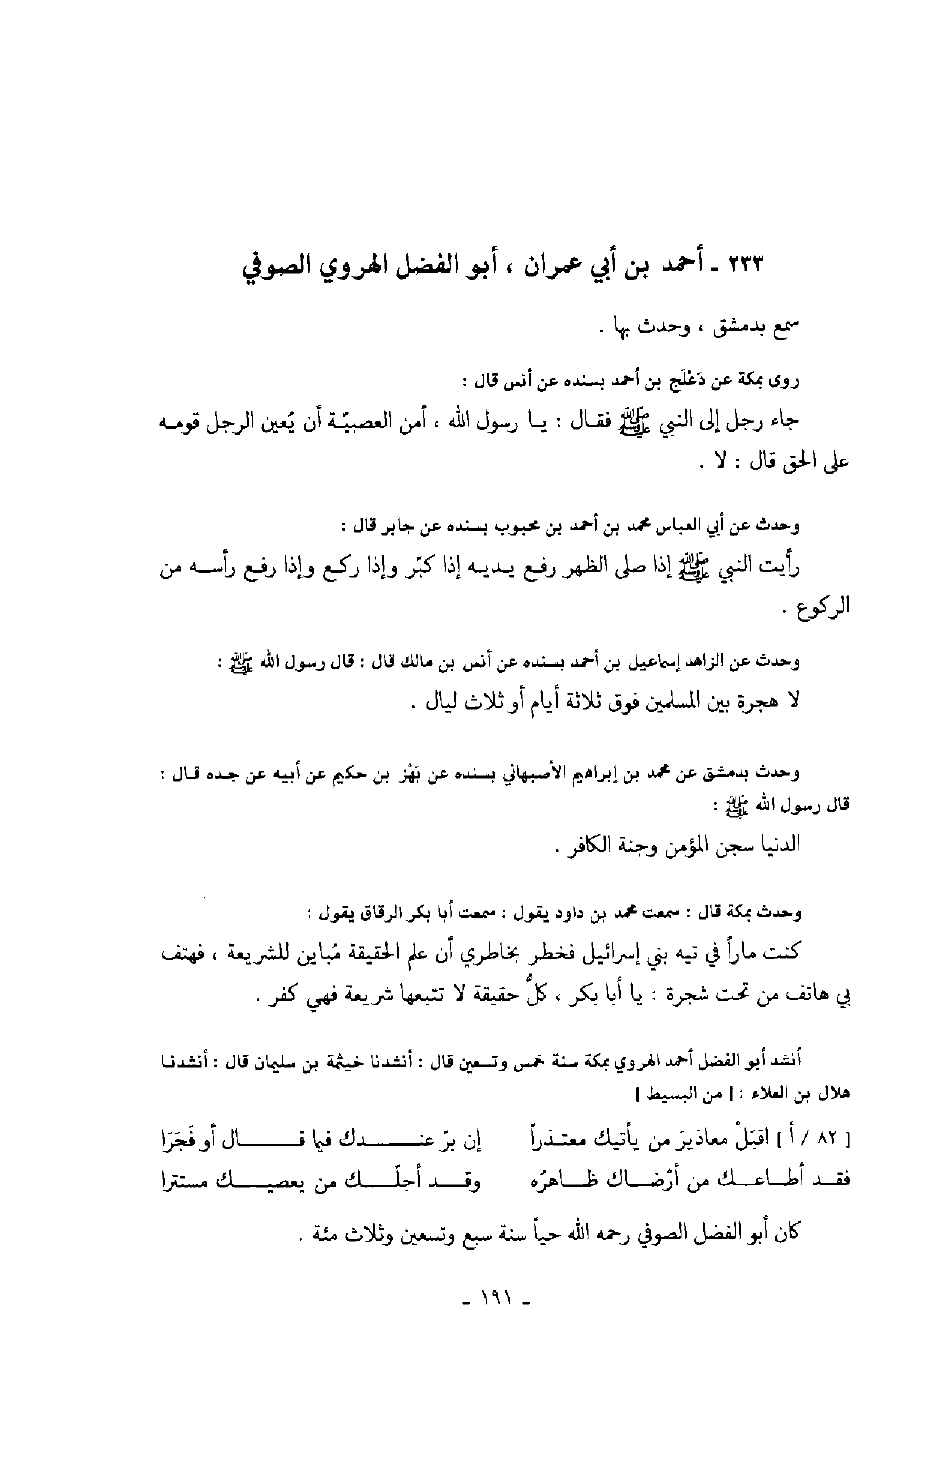 ٢٣٣ ـ أحمد بن أبي عمران ، أبو الفضل الهروي الصوفي
سمع بدمشق ، وحدث بها .
روى بمكة عن دَعْلَج بن أحمد بسنده عن أنس قال :
جاء رجل إلى النبي ﷺ فقال : يا رسول الله ، أمن العصبيّة أن يُعين الرجل قومه
على الحق قال : لا .
وحدث عن أبي العباس محمد بن أحمد بن محبوب بسنده عن جابر قال :
رأيت النبي ﷺ إذا صلى الظهر رفع يديه إذا كبّر وإذا ركع وإذا رفع رأسه من
الركوع .
وحدث عن الزاهد إسماعيل بن أحمد بسنده عن أنس بن مالك قال : قال رسول الله ﷺ :
لا هجرة بين المسلمين فوق ثلاثة أيام أو ثلاث ليال .
وحدث بدمشق عن محمد بن إبراهيم الأصبهاني بسنده عن بَهْز بن حكيم عن أبيه عن جده قال :
قال رسول الله ﷺ :
الدنيا سجن المؤمن وجنة الكافر .
وحدث بمكة قال : سمعت محمد بن داود يقول : سمعت أبا بكر الرقاق يقول :
كنت ماراً في تيه بني إسرائيل فخطر بخاطري أن علم الحقيقة مُباين للشريعة ، فهتف
بي هاتف من تحت شجرة : يا أبا بكر ، كلُّ حقيقة لا تتبعها شريعة فهي كفر .
أنشد أبو الفضل أحمد الهروي بمكة سنة خمس وتسعين قال : أنشدنا خيثمة بن سليمان قال : أنشدنا
هلال بن العلاء : [ من البسيط ]
[ ٨٢ / أ ] اقبَلْ معاذيرَ من يأتيك معتذراً إن برّ عندك فيما قال أو فَجَرَا
فقد أطاعك من أرْضاك ظاهرُه وقد أجلّك من يعصيك مستترا
كان أبو الفضل الصوفي رحمه الله حياً سنة سبع وتسعين وثلاث مئة .
ـ ١٩١ ـ